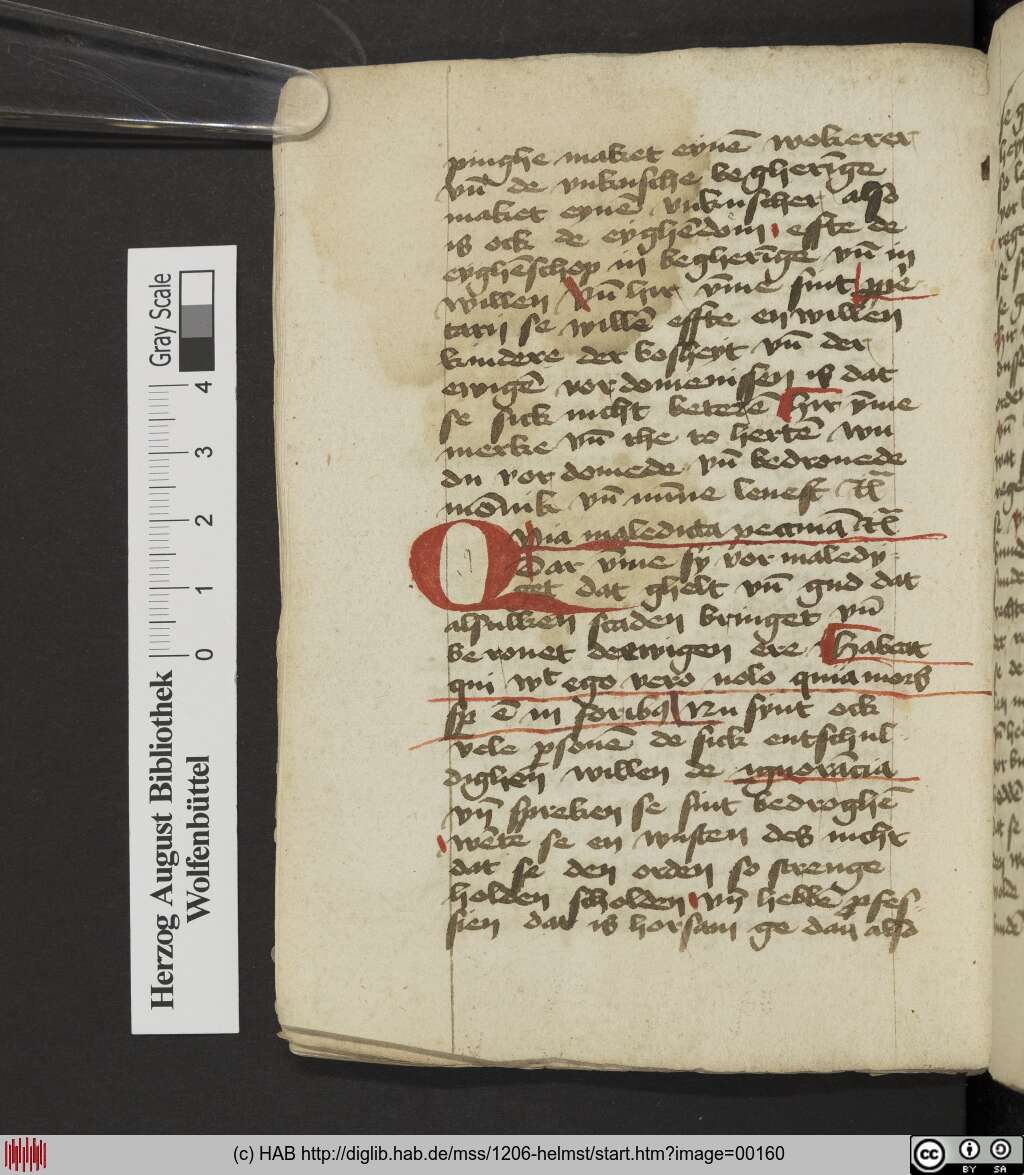 pinghe maket eynē wokerer
vn̄ de vnkusche begherīge
maket eynē vnkuscher also
is ock de eyghēdom effte de
eyghēschop in begherīge vn̄ in
willen vn̄ hir v̄me sint
se willē effte en willen
kindere der bosheyt vn̄ der
ewigē vordomenissen is dat
se sick nicht beterē hir v̄me
merke vn̄ the to hertē wu
du vordomede vn̄ bedrouede
vn̄
Quia maledicta peccunia
Dar v̄me sy vormaledy
get dat ghelt vn̄ gud dat
alsulken scaden bringet vn̄
berouet der ewigen ere Habeat
qui wlt ego vero nolo quia mors
ē in Nu synt ock
vele psonē de sick entschul
dighen willen de ignorācia
vn̄ spreken se sint bedroghē
wēte se en wusten des nicht
dat se den orden so strenge
holden scholden vn̄ hebbē pfes
sien dat is horsam ge dan also
Herzog August Bibliothek
Wolfenbüttel
Gray Scale
0 1 2 3 4
(c) HAB http://diglib.hab.de/mss/1206-helmst/start.htm?image=00160
cc BY SA